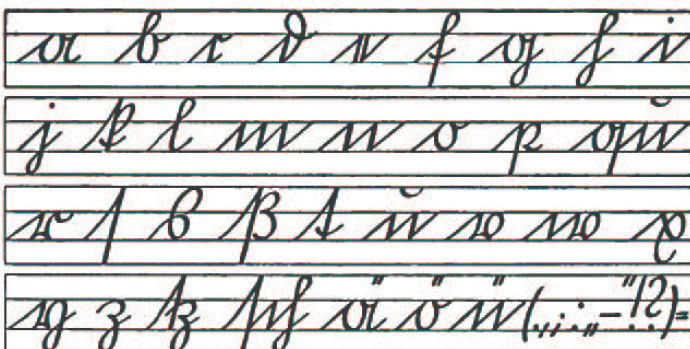 a b c d e f g h i
j k l m n o p qu
r ſ s ß t u v w x
y z tz ſch ä ö ü (.,;:„–“!?)=